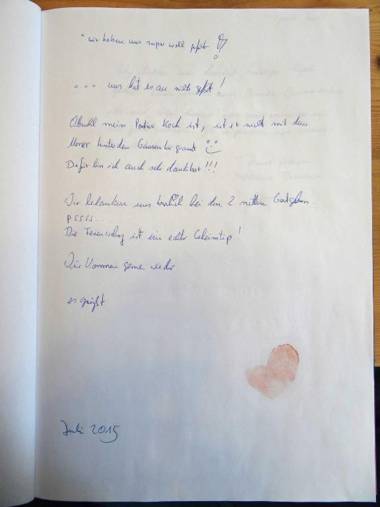 "wir haben uns super wohl gefühlt
... uns hat es an nichts gefehlt!
Obwohl mein Partner Koch ist, ist er nicht mit dem
Messer hinter den
Dafür bin ich auch sehr dankbar!!!
Wir bedanken uns herzlich bei den 2 netten Gastgebern
pssss...
Die Ferienwohnung ist ein echter Geheimtip!
Wir kommen gerne wieder
es grüßt
Juli 2015